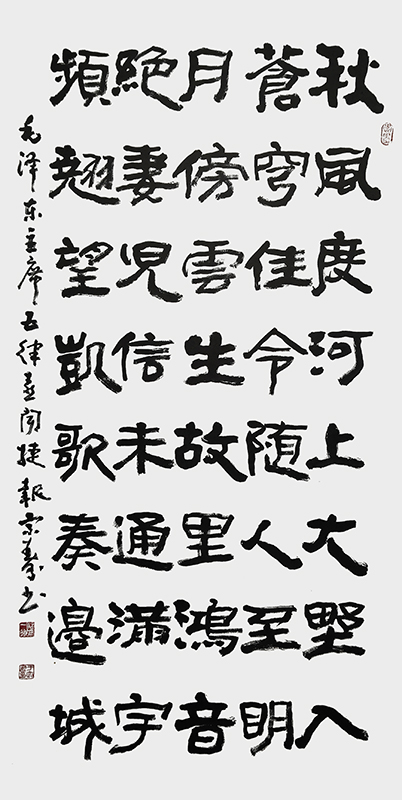 秋風度河上大野入
蒼穹佳令随人至明
月傍雲生故里鴻音
絶妻兒信未通滿宇
頻翹望凱歌奏邊城
毛泽东主席五律喜闻捷報书